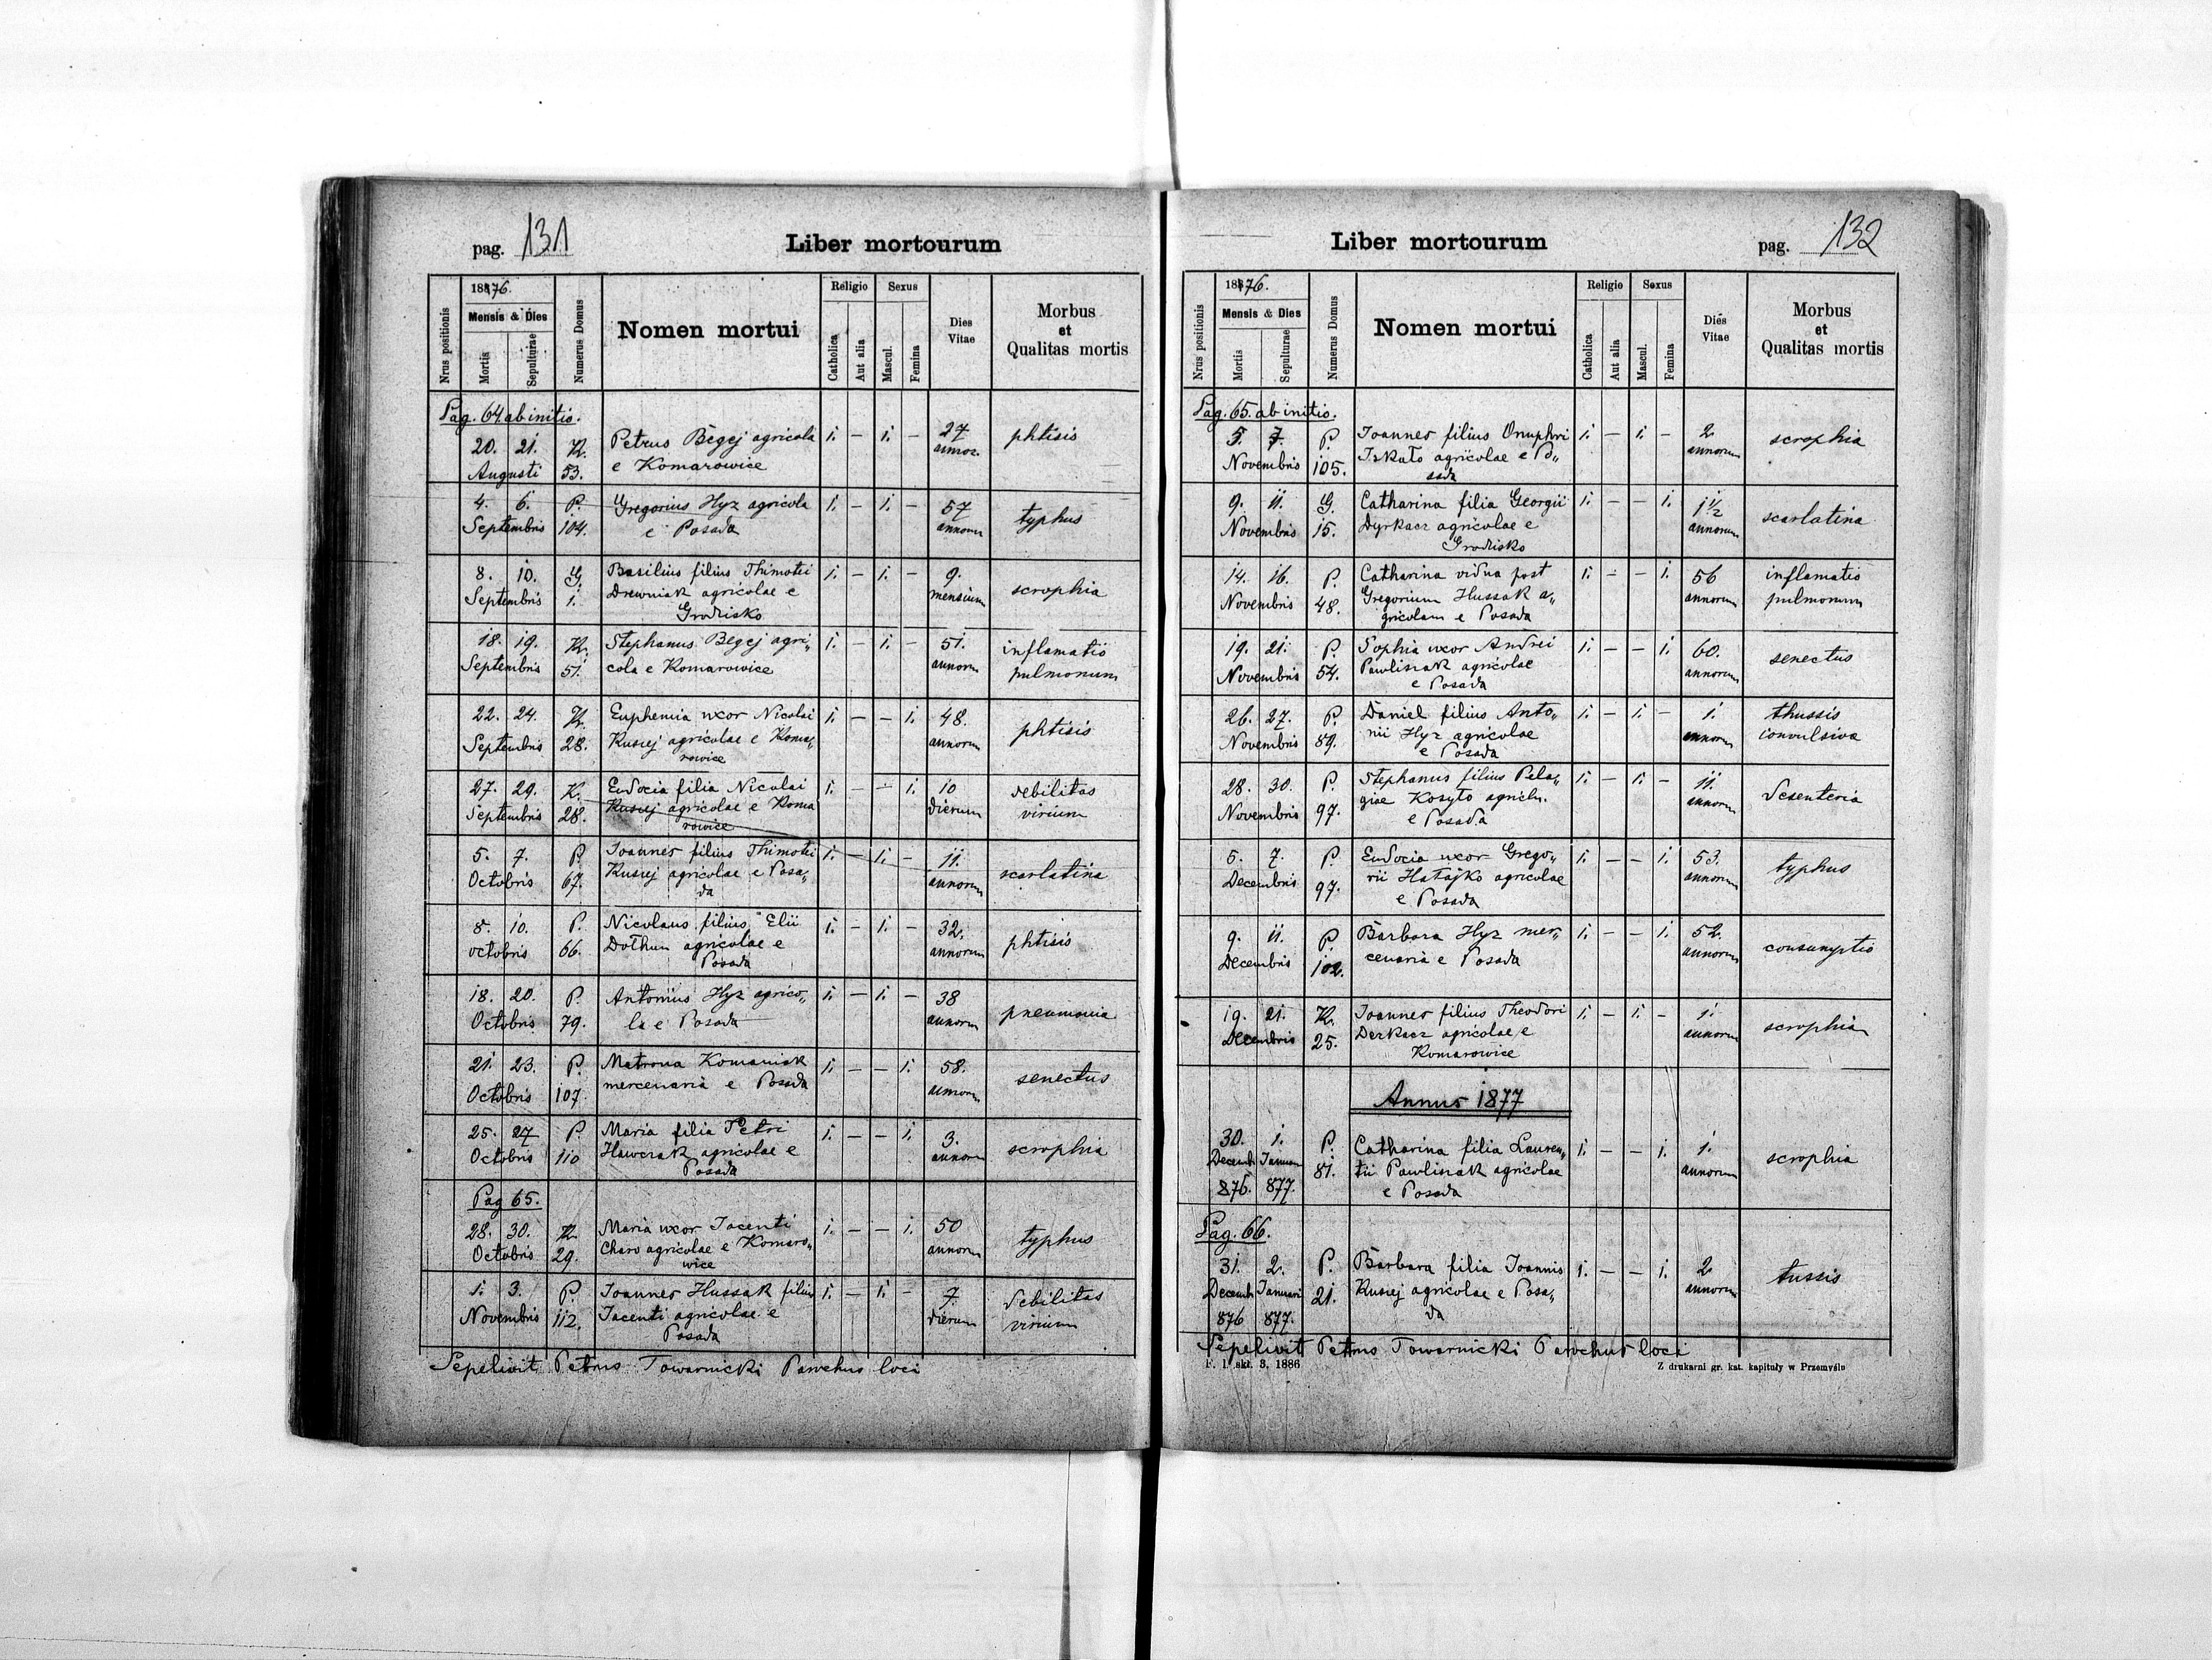 pag. 131
Liber mortourum
Nrus positionis
1876.
Mensis & Dies
Mortis
Sepulturae
Numerus Domus
Nomen mortui
Religio
Catholica
Aut alia
Sexus
Mascul.
Femina
Dies
Vitae
Morbus
et
Qualitas mortis
Pag. 64 ab initio.
20. 21. K. Petrus Begej agricola 1. — 1. — 27 phtisis
Augusti 53. e Komarowice annor.
4. 6. P. Gregorius Hyz agricola 1. — 1. — 57 typhus
Septembris 104. e Posada annorum
8. 10. G. Basilius filius Thimotei 1. — 1. — 9. scrophia
Septembris 1. Drewniak agricolae e mensium
Grodisko
18. 19. K. Stephanus Begej agri„ 1. — 1. — 51. inflamatio
Septembris 51. cola e Komarowice annorum pulmonum
22. 24. K. Euphemia uxor Nicolai 1. — — 1. 48. phtisis
Septembris 28. Kusiej agricolae e Koma„ annorum
rowice
27. 29. K. Eudocia filia Nicolai 1. — — 1. 10 debilitas
Septembris 28. Kusiej agricolae e Koma dierum virium
rowice
5. 7. P. Joannes filius Thimotei 1. — 1. — 11. scarlatina
Octobris 67. Kusiej agricolae e Posa„ annorum
da
8. 10. P. Nicolaus filius Elii 1. — 1. — 32. phtisis
octobris 66. Dothun agricolae e annorum
Posada
18. 20. P. Antonius Hyz agrico„ 1. — 1. — 38 pneumonia
Octobris 79. la e Posada annorum
21. 23. P. Matrona Komaniak 1. — — 1. 58. senectus
Octobris 107. mercenaria e Posada annorum
25. 27 P. Maria filia Petri 1. — — 1. 3. scrophia
Octobris 110 Hawczak agricolae e annorum
Posada
Pag 65.
28. 30. K. Maria uxor Jacenti 1. — — 1. 50 typhus
Octobris 29. Charo agricolae e Komaro„ annorum
wice
1. 3. P. Joannes Hussak filius 1. — 1. — 7 debilitas
Novembris 112. Jacenti agricolae e dierum virium
Posada
Sepelivit Petrus Towarnicki Parochus loci
Liber mortourum
pag. 132
Nrus positionis
1876.
Mensis & Dies
Mortis
Sepulturae
Numerus Domus
Nomen mortui
Religio
Catholica
Aut alia
Sexus
Mascul.
Femina
Dies
Vitae
Morbus
et
Qualitas mortis
Pag. 65. ab initio.
5. 7. P. Joannes filius Onuphri 1. — 1. — 2 scrophia
Novembris 105. Iskało agricolae e Po„ annorum
sada
9. 11. G. Catharina filia Georgii 1. — — 1. 1½ scarlatina
Novembris 15. Dyrkacz agricolae e annorum
Grodisko
14. 16. P. Catharina vidua post 1. — — 1. 56 inflamatio
Novembris 48. Gregorium Hussak a„ annorum pulmonum
gricolam e Posada
19. 21. P. Sophia uxor Andrei 1. — — 1. 60. senectus
Novembris 54. Pawlisiak agricolae annorum
e Posada
26. 27. P. Daniel filius Anto„ 1. — 1. — 1. thussis
Novembris 89. nii Hyz agricolae annorum convulsiva
e Posada
28. 30. P. Stephanus filius Pela„ 1. — 1. — 11. desenteria
Novembris 97. giae Kosyło agricln. annorum
e Posada
5. 7. P. Eudocia uxor Grego„ 1. — — 1. 53. typhus
Decembris 97. rii Hałajko agricolae annorum
e Posada
9. 11. P. Barbara Hyz mer„ 1. — — 1. 52. consumptio
Decembris 102. cenaria e Posada annorum
19. 21. K. Joannes filius Theodori 1. — 1. — 1. scrophia
Decembris 25. Derkacz agricolae e annorum
Komarowice
Annus 1877
30. 1. P. Catharina filia Lauren„ 1. — — 1. 1. scrophia
Decemb Januar 81. tii Pawlisiak agricolae annorum
876. 877. e Posada
Pag. 66.
31. 2. P. Barbara filia Joannis 1. — — 1. 2 tussis
Decemb Januari 21. Kusiej agricolae e Posa„ annorum
876 877. da
Sepelivit Petrus Towarnicki Parochus loci
F. l. skł. 3. 1886
Z drukarni gr. kat. kapituły w Przemyślu